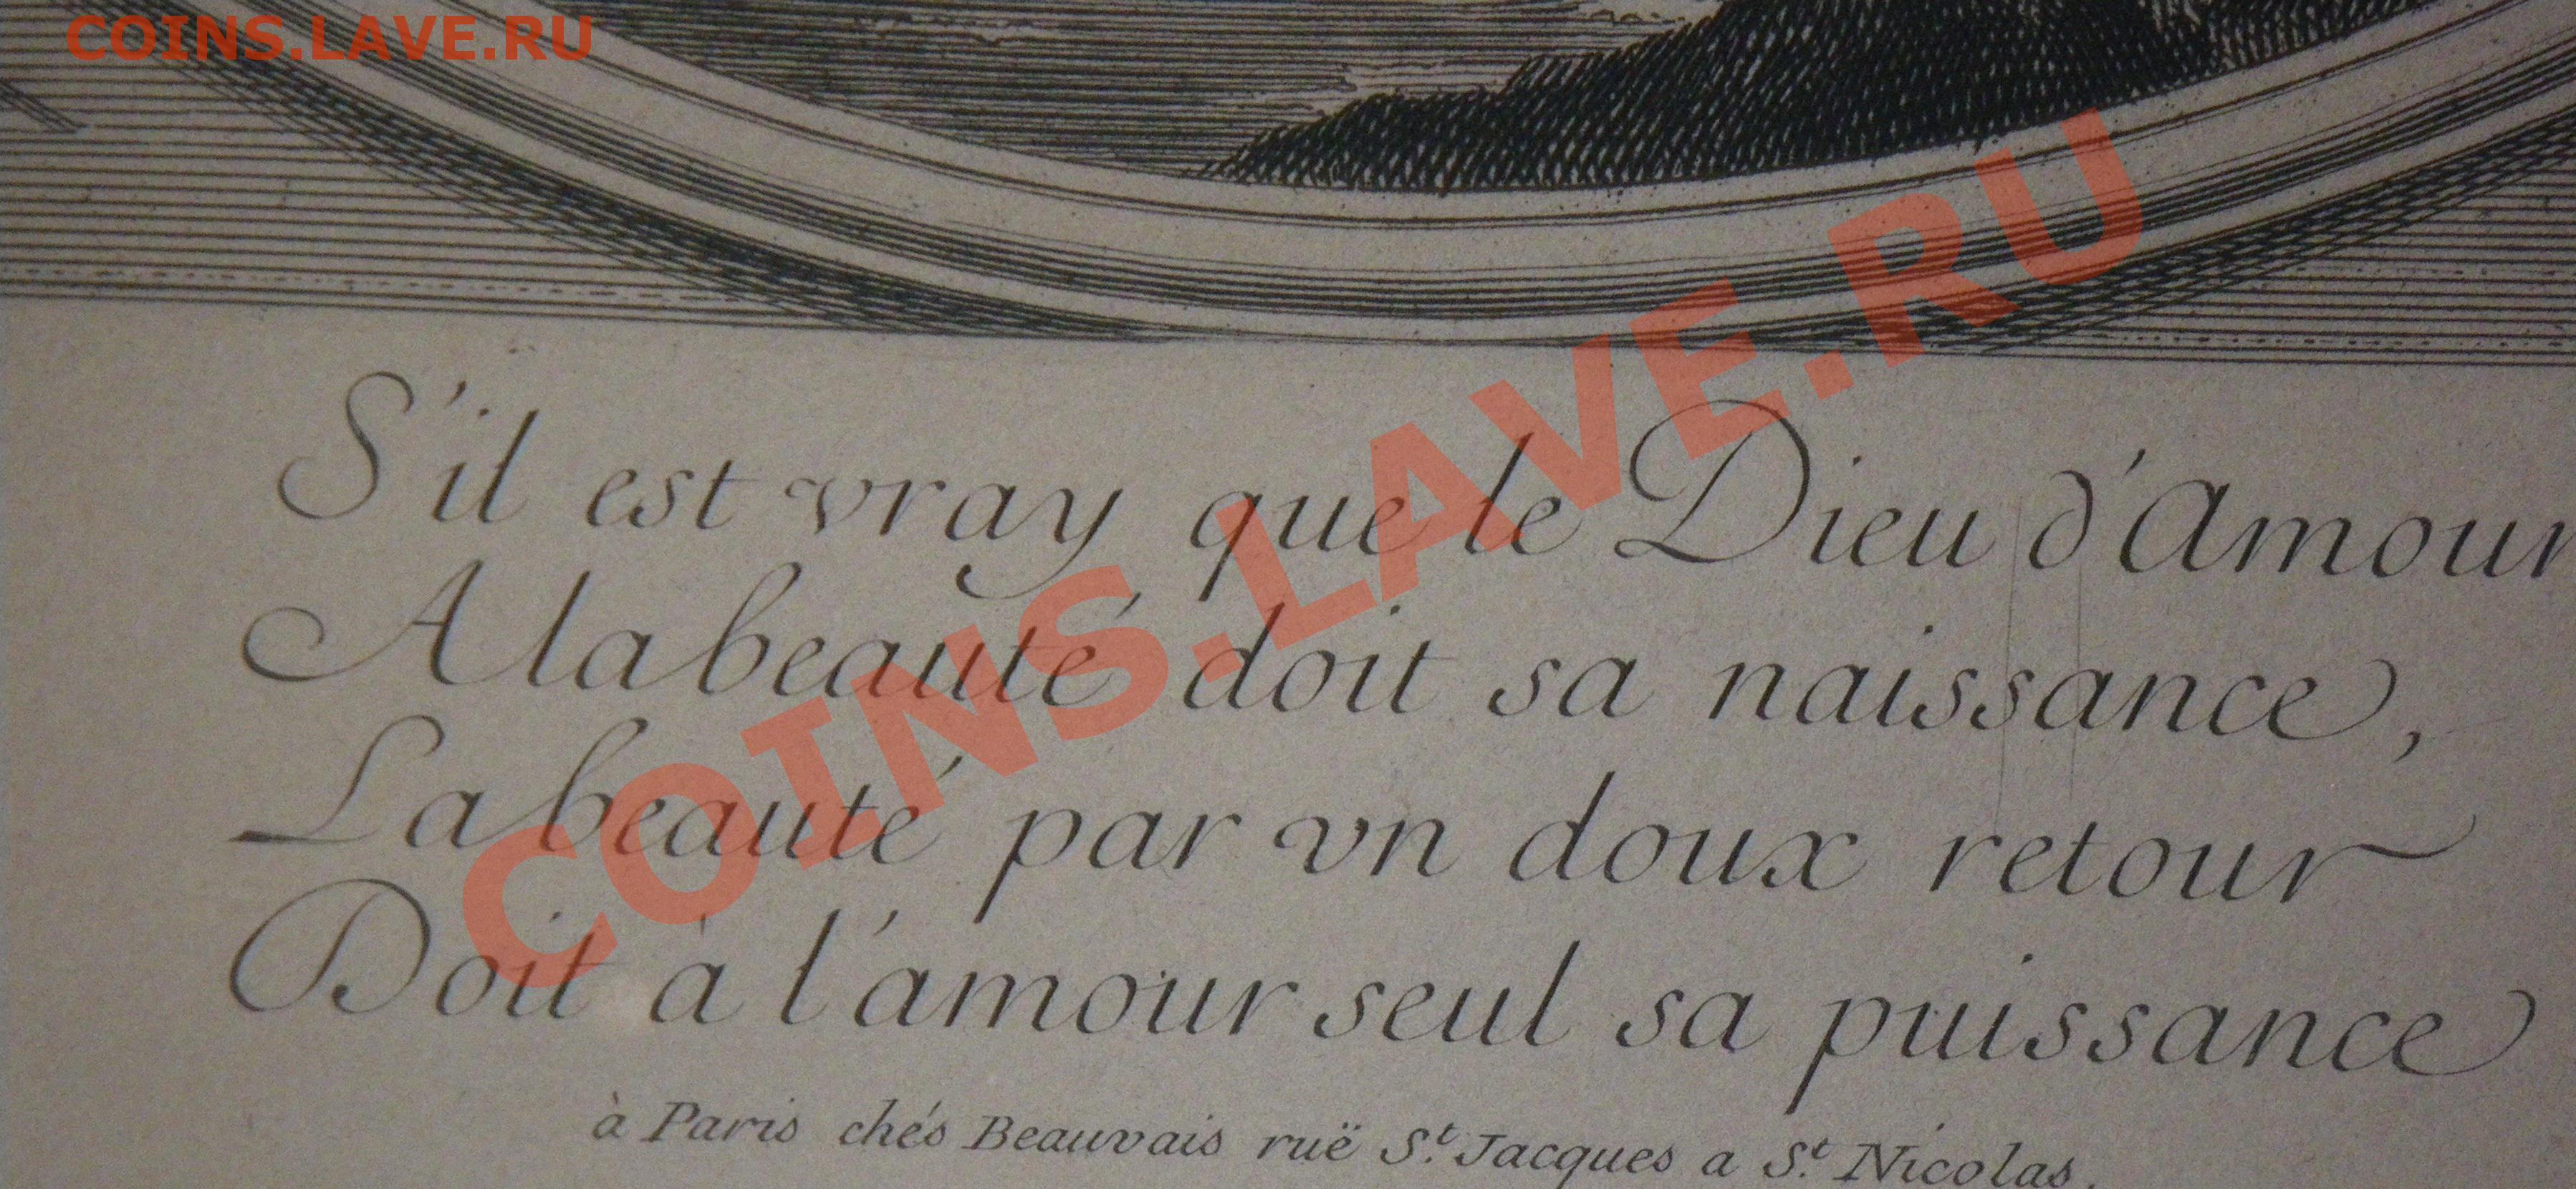 COINS.LAVE.RU
COINS.LAVE.RU
S'il est vray que le Dieu d'Amour
A la beauté doit sa naissance,
La beauté par vn doux retour
Doit à l'amour seul sa puissance
à Paris chés Beauvais ruë St. Jacques a St. Nicolas.